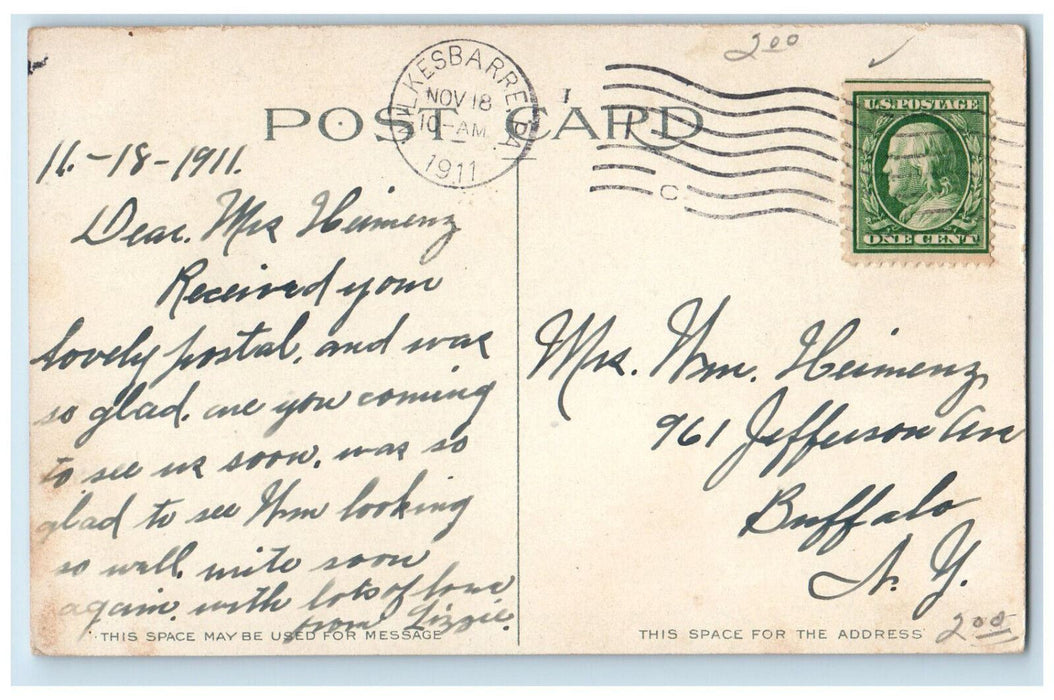 2 00
POST CARD
WILKESBARRE PA
NOV 18
10-AM
1911
C
U.S. POSTAGE
ONE CENT
11.-18-1911.
Dear. Mrs Heimenz
Received your
lovely postal, and was
so glad. are you coming
to see us soon, was so
glad to see Wm looking
so well, write soon
again, with lots of love
from Lizzie.
THIS SPACE MAY BE USED FOR MESSAGE
Mrs. Wm. Heimenz
961 Jefferson Ave
Buffalo
N. Y.
THIS SPACE FOR THE ADDRESS
2 00